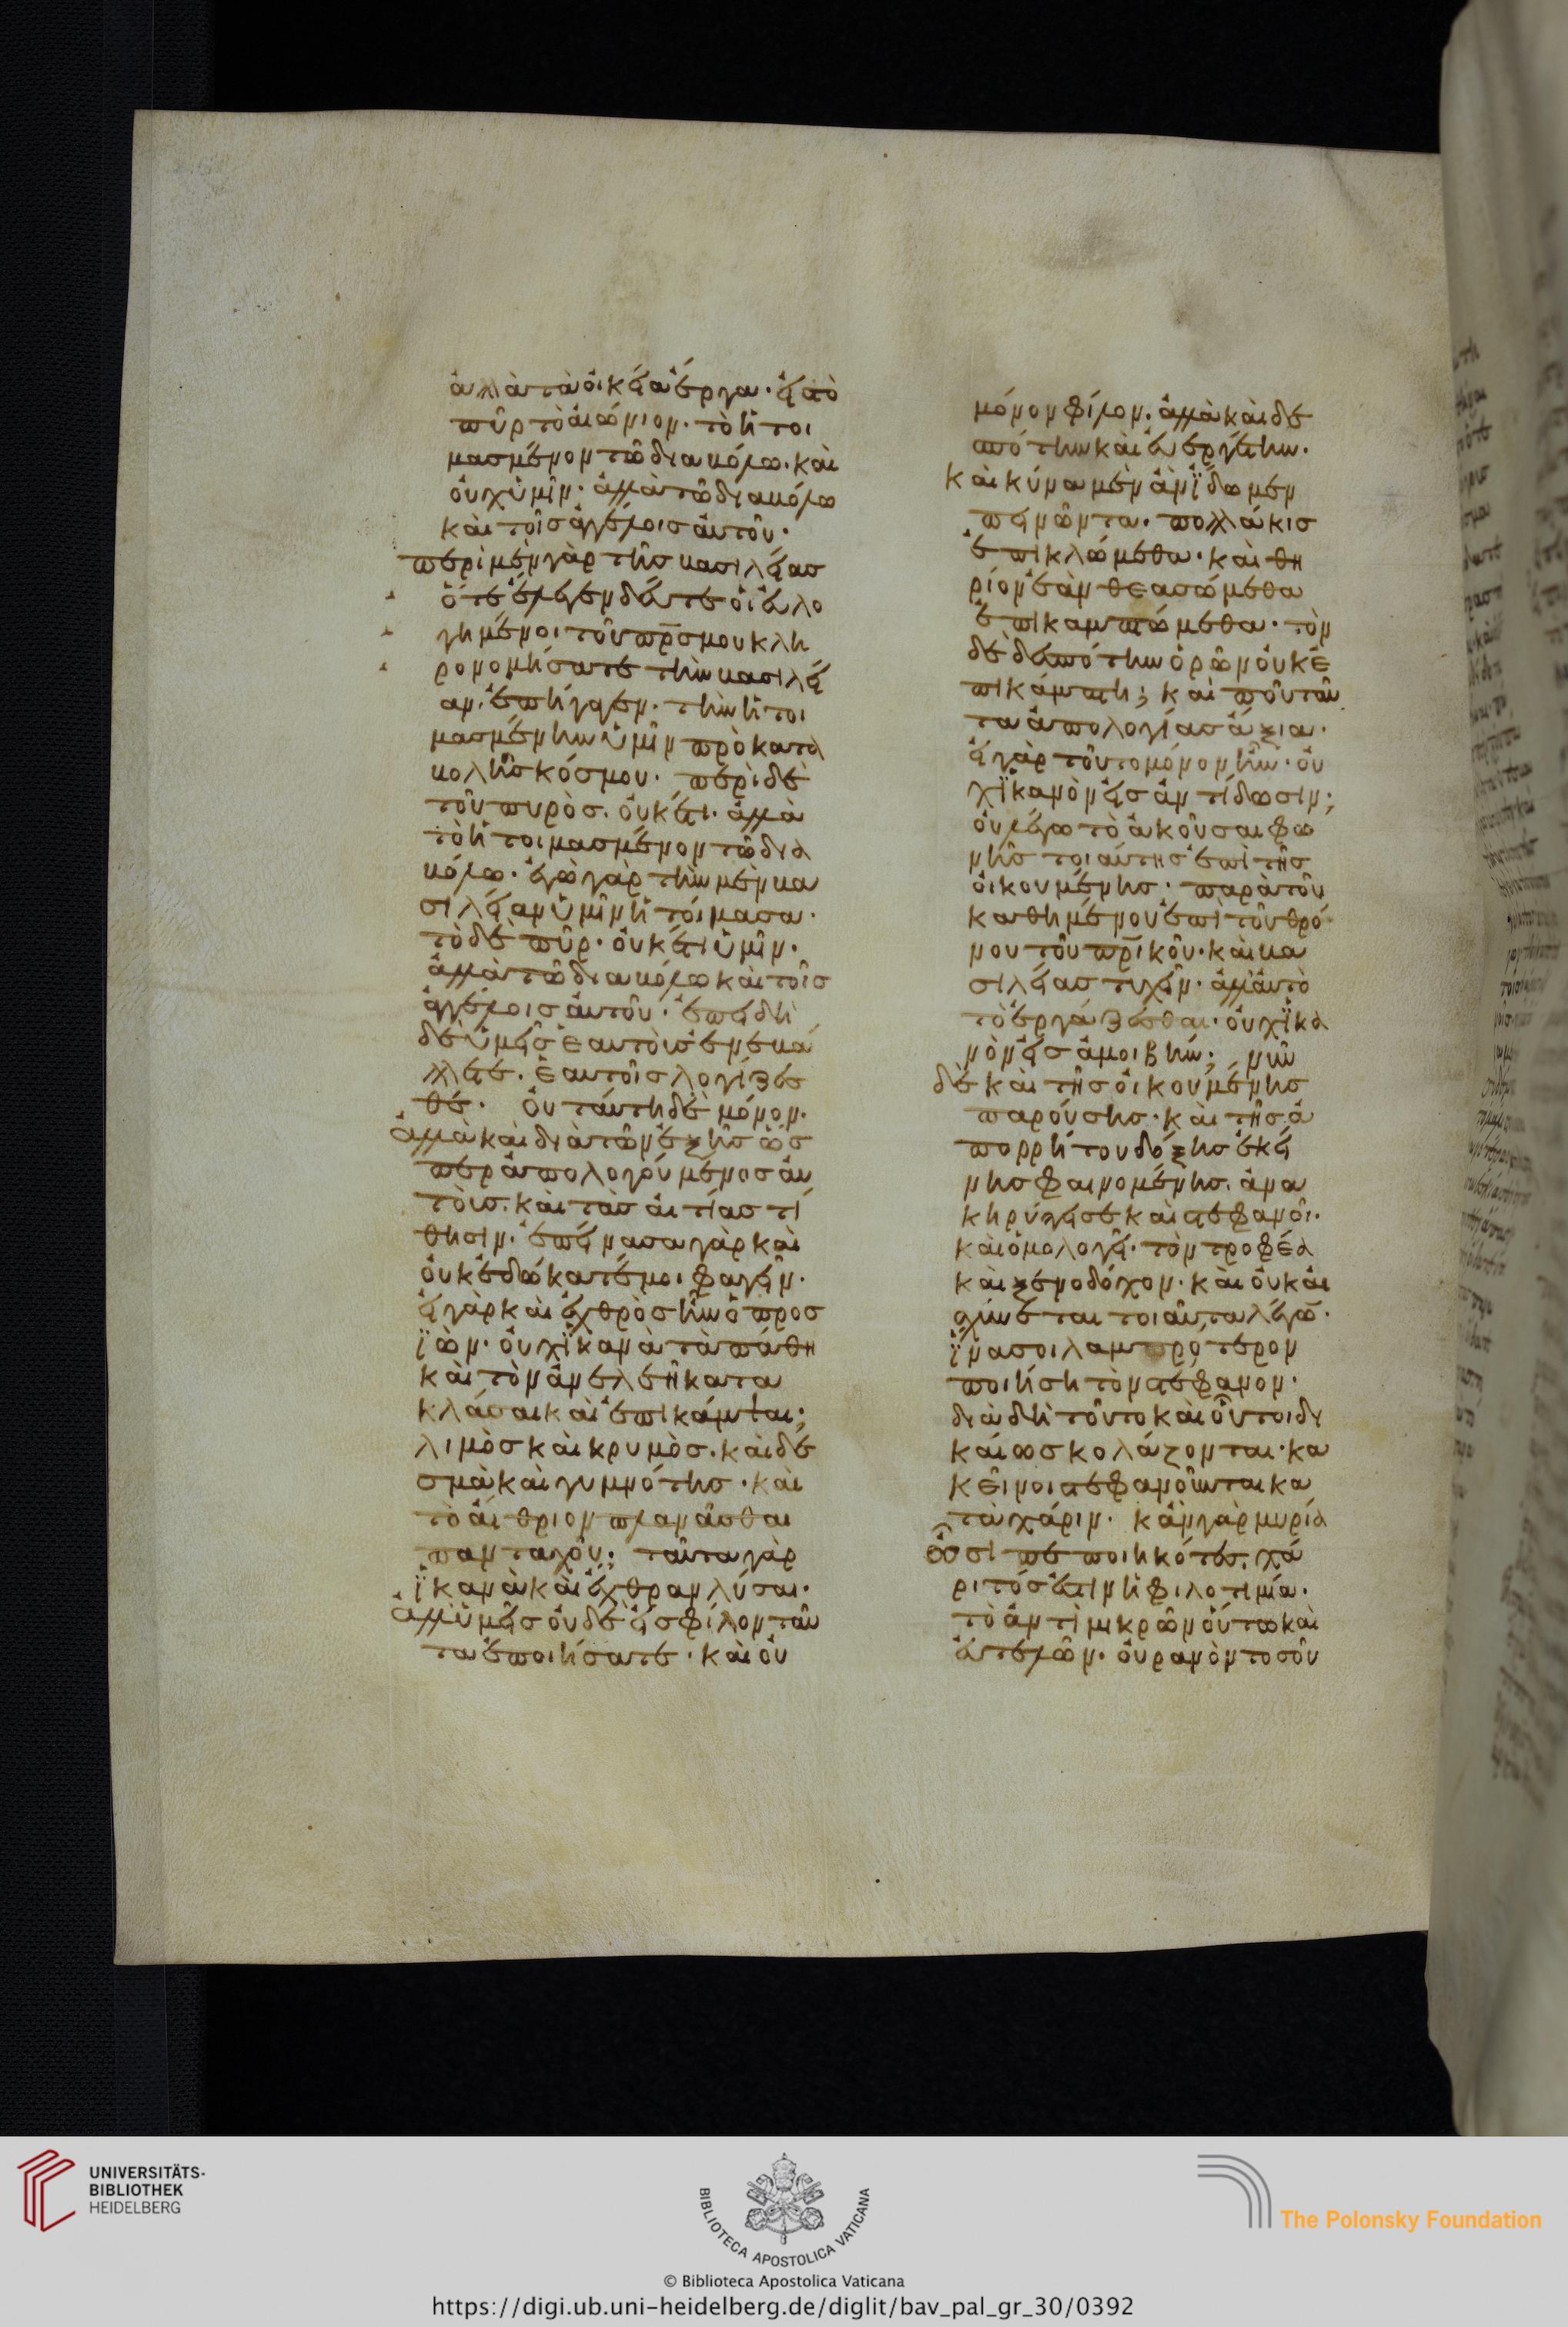 ἀλλὰ τὰ οἰκεῖα ἔργα· εἰς τὸ
πῦρ τὸ αἰώνιον· τὸ ἡτοι
μασμένον τῶ διαβόλω· καὶ
οὐχ ὑμῖν· ἀλλὰ τῶ διαβόλω
καὶ τοῖς ἀγγέλοις αὐτοῦ·
περὶ μὲν γὰρ τῆς βασιλείας
ὅτε ἔλεγεν δεῦτε οἱ εὐλο
γημένοι τοῦ πρς μου κλη
ρονομήσατε τὴν βασιλεί
αν, ἐπήγαγεν· τὴν ἡτοι
μασμένην ὑμῖν πρὸ κατα
βολῆς κόσμου· περὶ δὲ
τοῦ πυρὸς· οὐκέτι· ἀλλὰ
τὸ ἡτοιμασμένον τῶ δια
βόλω· ἐγὼ γὰρ τὴν μὲν βα
σιλείαν ὑμῖν ἡτοίμασα·
τὸ δὲ πῦρ· οὐκέτι ὑμῖν·
ἀλλὰ τῶ διαβόλω καὶ τοῖς
ἀγγέλοις αὐτοῦ· ἐπειδὴ
δὲ ὑμεῖς ἑαυτοὺς ἐνεβά
λετε· ἑαυτοῖς λογίζεσ
θε· Οὐ ταύτη δὲ μόνον·
ἀλλὰ καὶ διὰ τῶν ἑξῆς ὥσ
περ ἀπολογούμενος αὐ
τοῖς· καὶ τὰς αἰτίας τί
θησιν· ἐπείνασα γὰρ καὶ
οὐκ ἐδώκατέ μοι φαγεῖν·
εἰ γὰρ καὶ ἐχθρὸς ἦν ὁ προσ
ϊὼν· οὐχ ϊκανὰ τὰ πάθη
καὶ τὸν ἀνελεῆ κατα
κλάσαι καὶ ἐπικάμψαι;
λιμὸς καὶ κρυμὸς· καὶ δε
σμὰ καὶ γυμνότης· καὶ
τὸ αἴθριον πλανᾶσθαι
πανταχοῦ; ταῦτα γὰρ
ϊκανὰ καὶ ἔχθραν λύσαι·
ἀλλ' ὑμεῖς οὐδὲ εἰς φίλον ταῦ
τα ἐποιήσατε· καὶ οὐ
μόνον φίλον· ἀλλὰ καὶ δε
σπότην καὶ εὐεργέτην·
καὶ κύνα μὲν ἂν ϊδωμεν
πεινῶντα· πολλάκις
ἐπικλώμεθα· καὶ θη
ρίον ἐὰν θεασώμεθα
ἐπικαμπτώμεθα· τὸν
δὲ δεσπότην ὁρῶν οὐκ ἐ
πικάμπτη; καὶ ποῦ ταῦ
τα ἀπολογίας ἄξια·
εἰ γὰρ τοῦτο μόνον ἦν· οὐ
χ ϊκανὸν εἰς ἀντίδωσιν;
οὐ λέγω τὸ ἀκοῦσαι φω
νῆς τοιαύτης ἐπὶ τῆς
οἰκουμένης· παρὰ τοῦ
καθημένου ἐπὶ τοῦ θρό
νου τοῦ πρικοῦ· καὶ βα
σιλείας τυχεῖν· ἀλλ' αὐτὸ
τὸ ἐργάζεσθαι· οὐχ ϊκα
νὸν εἰς ἀμοιβὴν; νῦν
δὲ καὶ τῆς οἰκουμένης
παρούσης· καὶ τῆς ἀ
πορρήτου δόξης ἐκεί
νης φαινομένης· ἀνα
κηρύττει σε καὶ στεφανοῖ·
καὶ ὁμολογεῖ· τὸν τροφέα
καὶ ξενοδόχον· καὶ οὐκ αι
σχύνεται τοιαῦτα λέγω̅·
ϊνα σοι λαμπρότερον
ποιήση τὸν στέφανον·
διὰ δὴ τοῦτο καὶ οὗτοι δι
καίως κολάζονται· κα
κεῖνοι στεφανοῦνται κα
τὰ χάριν· κἂν γὰρ μυρία
ὦσι πεποιηκότες, χά
ριτός ἐστιν ἡ φιλοτιμία·
τὸ ἀντὶ μικρῶν οὕτω καὶ
εὐτελῶν· οὐρανὸν τοσοῦ
UNIVERSITÄTS-
BIBLIOTHEK
HEIDELBERG
BIBLIOTECA APOSTOLICA VATICANA
The Polonsky Foundation
© Biblioteca Apostolica Vaticana
https://digi.ub.uni-heidelberg.de/diglit/bav_pal_gr_30/0392